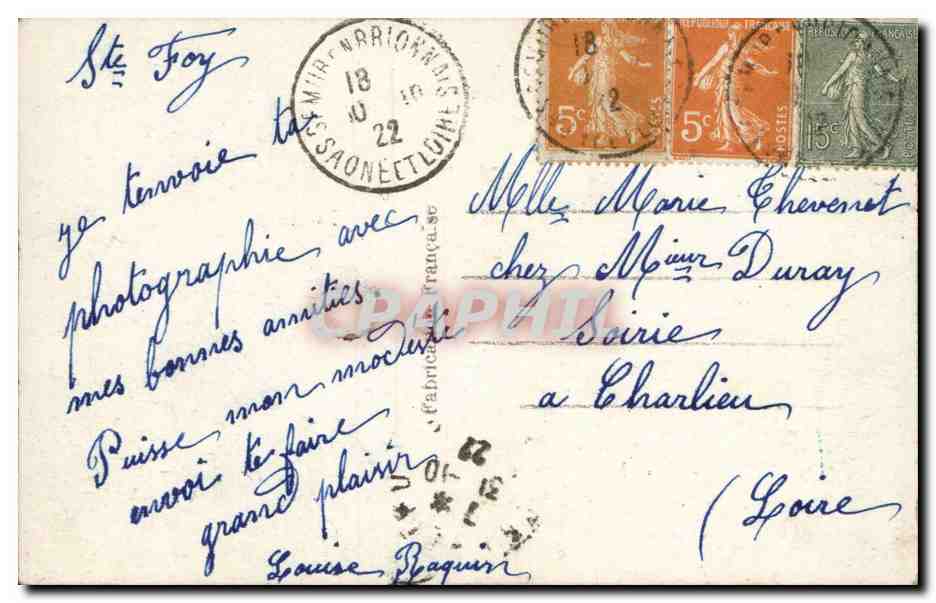 Ste Foy
je t'envoie ta
photographie avec
mes bonnes amitiés.
Puisse mon modeste
envoi te faire
grand plaisir
Louise Raquin
SEMUR EN BRIONNAIS
18
30 10
22
SAONE ET LOIRE
Fabrication Française
CPAPHIL
18
2
5c
REPUBLIQUE FRANÇAISE
5c
POSTES
REPUBLIQUE FRANÇAISE
15c
POSTES
Mlle Marie Thevenet
chez Mieur Duray
Soirie
a Charlieu
(Loire)
31
10
22